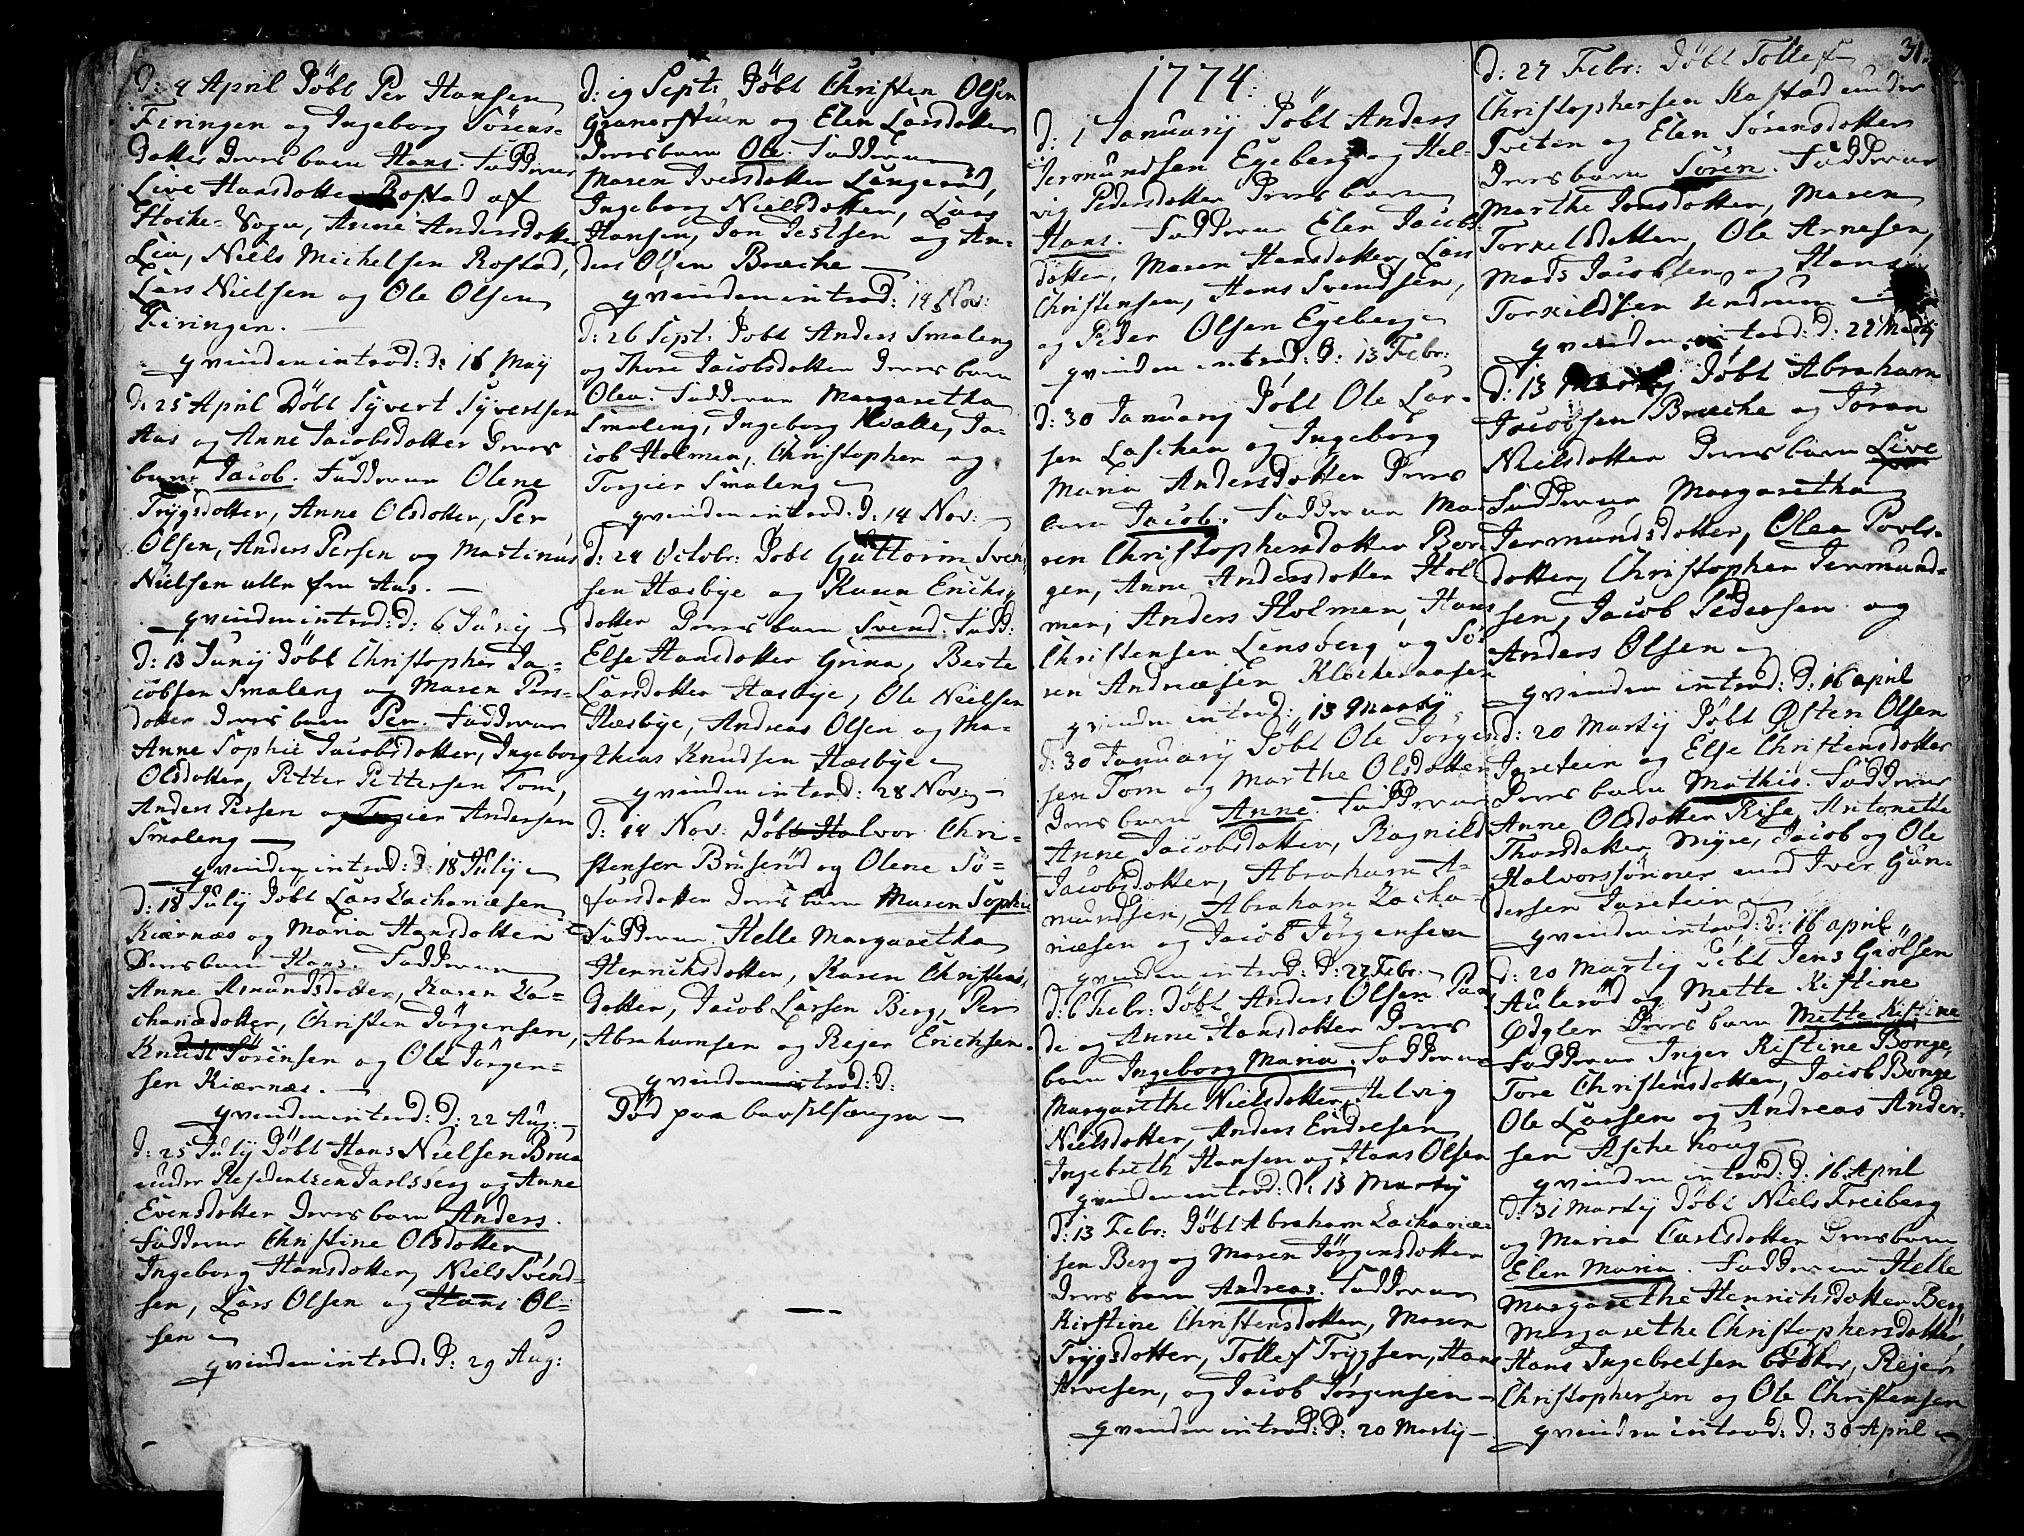 D: 4 April Döbt Per Hansen
Firingen og Ingeborg Sörens-
dotter Deres barn Hans. Fadderne
Live Hansdotter Rostad af
Hoche-Sogn, Anne Andersdotter
Lie, Niels Michelsen Rostad,
Lars Nielsen og Ole Olsen
Firingen.
qvinden introd: D: 16 May
D: 25 April Döbt Syvert Syvertsen
Aas og Anne Jacobsdotter Deres
barn Jacob. Fadderne Olene
Trygsdotter, Anne Olsdotter, Per
Olsen, Anders Persen og Martinus
Nielsen alle fra Aas.
qvinden introd: D: 6 Junij
D: 13 Junij Döbt Christopher Ja-
cobsen Smaleng og Maren Pers-
dotter Deres barn Per. Fadderne
Anne Sophie Jacobsdotter, Ingeborg
Olsdotter, Petter Pettersen Tom,
Anders Persen og Torgier Andersen
Smaleng
qvinden introd: D: 18 July
D: 18 July Döbt Lars Zachariæsen
Kiærnæs og Maria Hansdotter
Deres barn Hans. Fadderne
Anne Asmundsdotter, Karen Za-
chariædotter, Christen Jörgensen,
Knud Sörensen og Ole Jörgen-
sen Kiærnæs.
qvinden introd: D: 22 Aug:
D: 25 July Döbt Hans Nielsen Brua
under Residentsen Jarlsberg og Anne
Evensdotter Deres barn Anders.
Fadderne Christine Olsdotter,
Ingeborg Hansdotter, Niels Svend-
sen, Lars Olsen og Hans Ol-
sen
qvinden introd: D: 29 Aug:
D: 19 Sept: Döbt Christen Olsen
Granerstuen og Elen Larsdotter
Deres barn Ole. Fadderne
Maren Iversdotter Langeröd,
Ingeborg Nielsdotter, Lars
Hansen, Jon Jestsen og An-
ders Olsen Breche
qvinden introd: 14 Nov:
D: 26 Sept: Döbt Anders Smaleng
og Thore Jacobsdotter Deres barn
Olea. Fadderne Margaretha
Smaleng, Ingeborg Kvalle, Ja-
cob Holmen, Christopher og
Torgier Smaleng
qvinden introd: D: 14 Nov:
D: 24 Octobr: Döbt Guttorm Sven-
sen Hæsbye og Karen Erichs-
dotter Deres barn Svend. Fadd:
Else Hansdotter Grina, Berte
Larsdotter Hæsbye, Ole Nielsen
Hæsbye, Andreas Olsen og Ma-
thias Knudsen Hæsbye
qvinden introd: 28 Nov:
D: 14 Nov: Döbt Halvor Chri-
stensen Bruseröd og Olene Sö-
farsdotter Deres barn Maren Sophie
Fadderne Helle Margaretha
Henrichsdotter, Karen Christens-
dotter, Jacob Larsen Berg, Per
Abrahamsen og Rejer Erichsen.
qvinden introd: D:
Död paa barselsængen
1774:
D: 1 January Döbt Anders
Jermundsen Egeberg og Hel-
vig Pedersdotter Deres barn
Hans. Fadderne Elen Jacobs-
dotter, Maren Hansdotter, Lars
Christensen, Hans Svendsen,
og Peder Olsen Egeberg
qvinden introd: D: 13 Febr:
D: 30 January Döbt Ole Lar-
sen Laschen og Ingeborg
Maria Andersdotter Deres
barn Jacob. Fadderne Ma-
ren Christophersdotter Ber-
gen, Anne Andersdotter Hol-
men, Anders Holmen, Hans
Christensen Lensberg og Sö-
ren Andriæsen Klocheraasen
qvinden introd: 13 Martij
D: 30 January Döbt Ole Jörgen-
sen Tom og Marthe Olsdotter
Deres barn Anne. Fadderne
Anne Jacobsdotter, Ragnild
Jacobsdotter, Abraham A-
mundsen, Abraham Zacha-
riæsen og Jacob Jörgensen
qvinden introd: D: 22 Febr:
D: 6 Febr: Döbt Anders Olsen Pa-
de og Anne Hansdotter Deres
barn Ingeborg Maria. Fadderne
Margarethe Nielsdotter, Helvig
Nielsdotter, Anders Endresen,
Ingebreth Hansen og Hans Olsen
qvinden introd: D: 13 Martij
D: 13 Febr: Döbt Abraham Zachariæ-
sen Berg og Maren Jörgensdotter
Deres barn Andreas. Fadderne
Kirstine Christensdotter, Maren
Trygsdotter, Tollef Trygsen, Hans
Arvesen, og Jacob Jörgensen
qvinden introd: D: 20 Martij
31.
D: 27 Febr: Döbt Tollef
Christophersen Kastad under
Tveten og Elen Sörensdotter
Deres barn Sören. Fadderne
Marthe Jonsdotter, Maren
Torkelsdotter, Ole Arnesen,
Mads Jacobsen, og Hans
Torkildsen Undrum
qvinden introd: D: 22 Martij
D: 13 Martij Döbt Abraham
Jacobsen Breche og Jöran
Nielsdotter Deres barn Live
Fadderne Margaretha
Jermundsdotter, Olea Povls-
dotter, Christopher Jermund-
sen, Jacob Pedersen og
Anders Olsen
qvinden introd: D: 16 april
D: 20 Martij Döbt Östen Olsen
Jareteien og Else Christensdotter
Deres barn Mathis. Fadderne
Anne Olsdotter Rise, Antonette
Thorsdotter Myre, Jacob og Ole
Halvorssönner med Iver Gun-
dersen Jareteien
qvinden introd: D: 16 april
D: 20 Martij Döbt Jens Gröłsen
Auleröd og Mette Kistine
Ödgler Deres barn Mette Kistine
Fadderne Inger Kistine Bonge,
Tore Christensdotter, Jacob Bonge
Ole Larsen og Andreas Ander-
sen Aschehoug
qvinden introd: D: 16 April
D: 31 Martij Döbt Niels Freiberg
og Maria Carlsdotter Deres barn
Elen Maria. Fadderne Helle
Margarethe Henrichsdotter Berg
Margarethe Christophersdotter
Hans Ingebretsen Bödker, Rejer
Christophersen og Ole Christensen
qvinden introd: D: 30 April